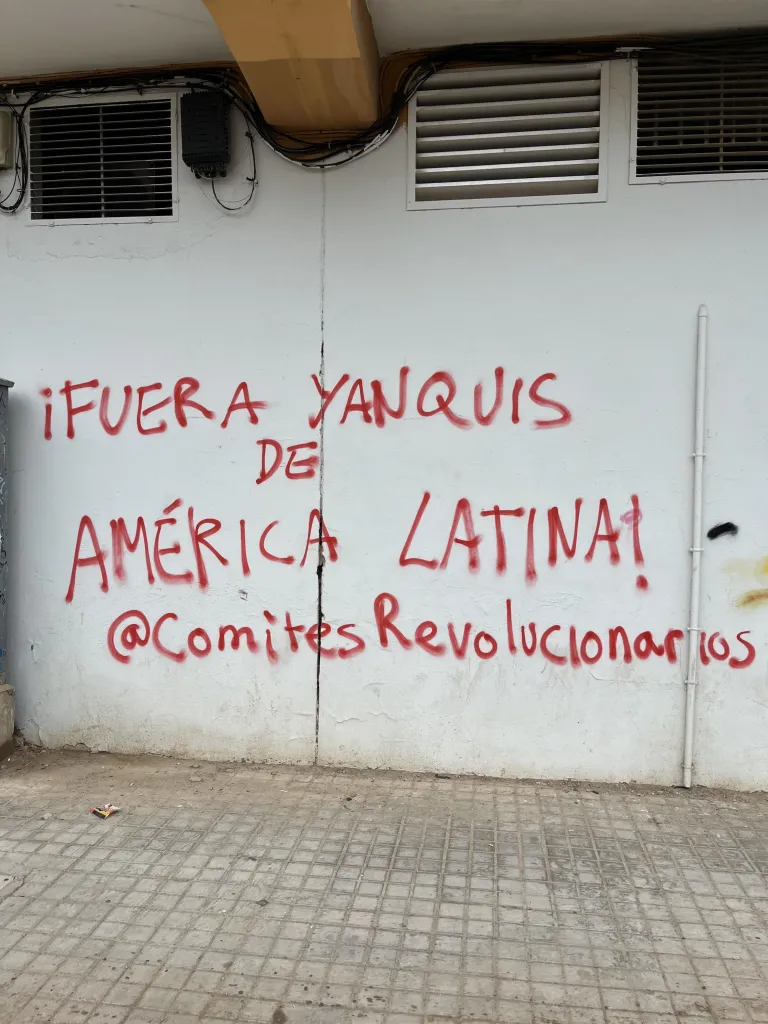 ¡FUERA YANQUIS
DE
AMÉRICA LATINA!
@ComitesRevolucionarios